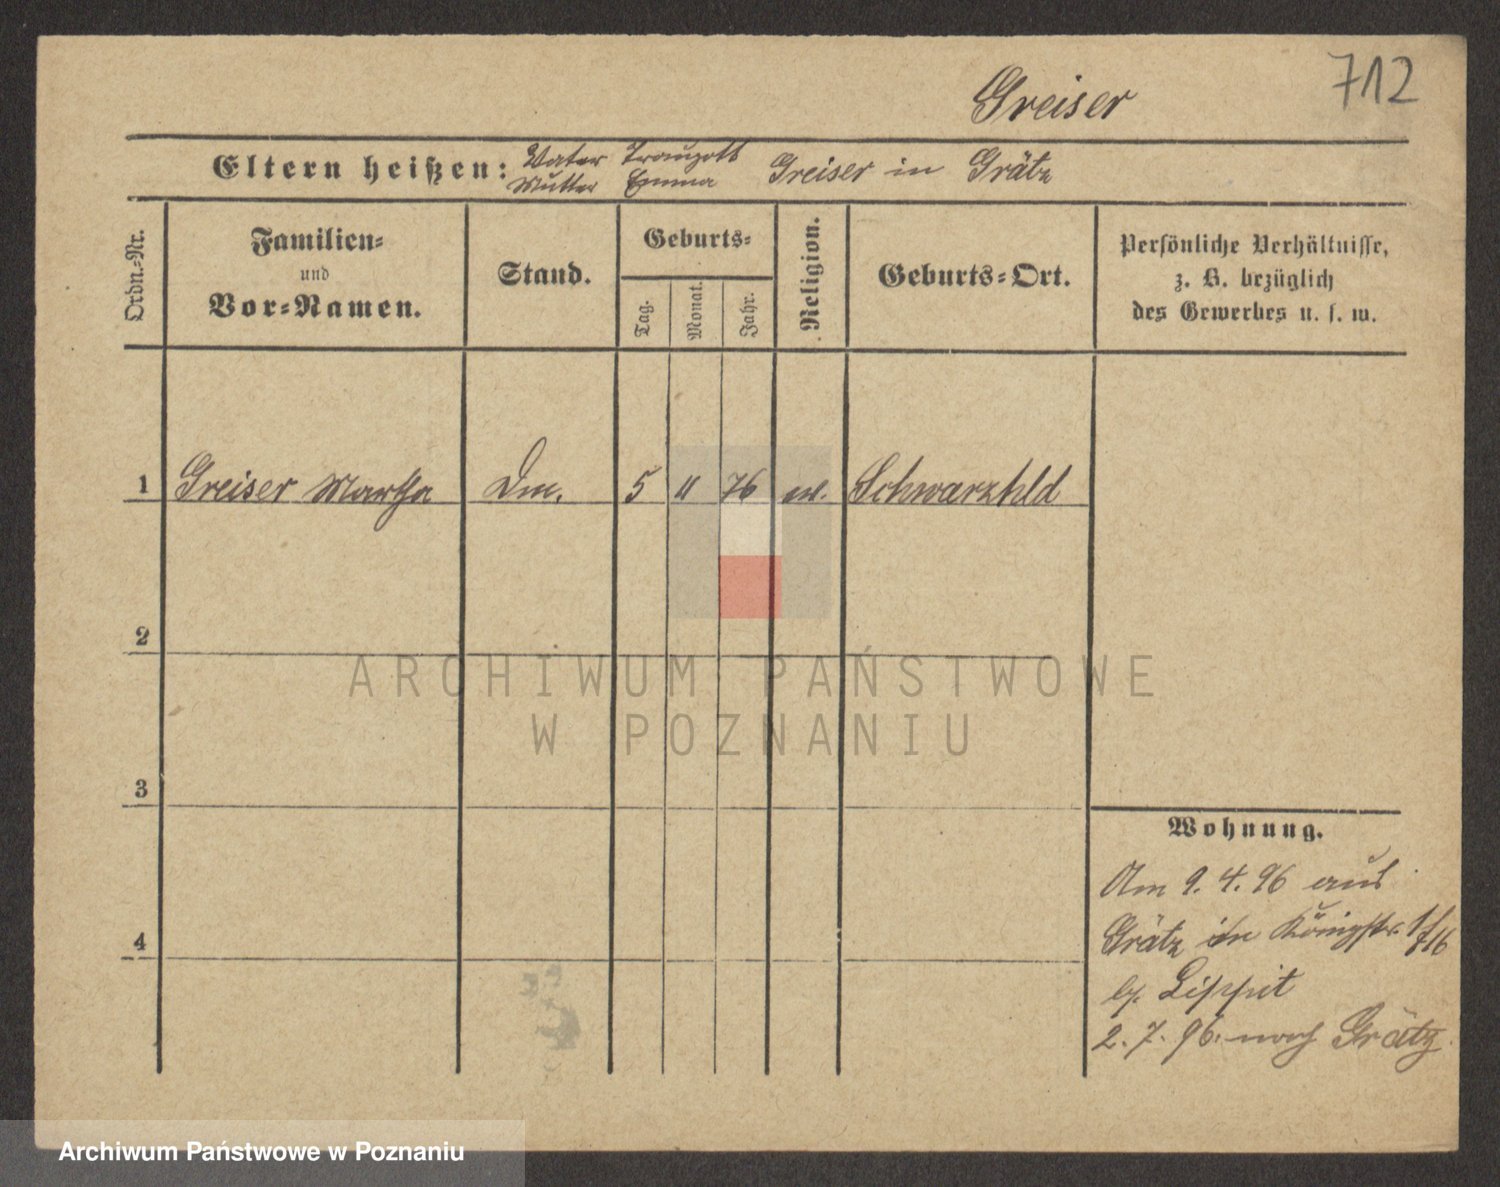 712
Greiser
Eltern heißen: Vater Traugott Greiser in Grätz
Mutter Emma
Ordn.-Nr.
Familien-
und
Vor-Namen.
Stand.
Geburts-
Tag.
Monat.
Jahr.
Religion.
Geburts-Ort.
Persönliche Verhältnisse,
z. B. bezüglich
des Gewerbes u. s. w.
1 Greiser Martha 5 11 76 ev. Schwarzhld
2
3
4
Wohnung.
Am 9. 4. 96 aus
Grätz in Königstr.
b. Lippit
2. 7. 96. nach Grätz.
ARCHIWUM PAŃSTWOWE
W POZNANIU
Archiwum Państwowe w Poznaniu